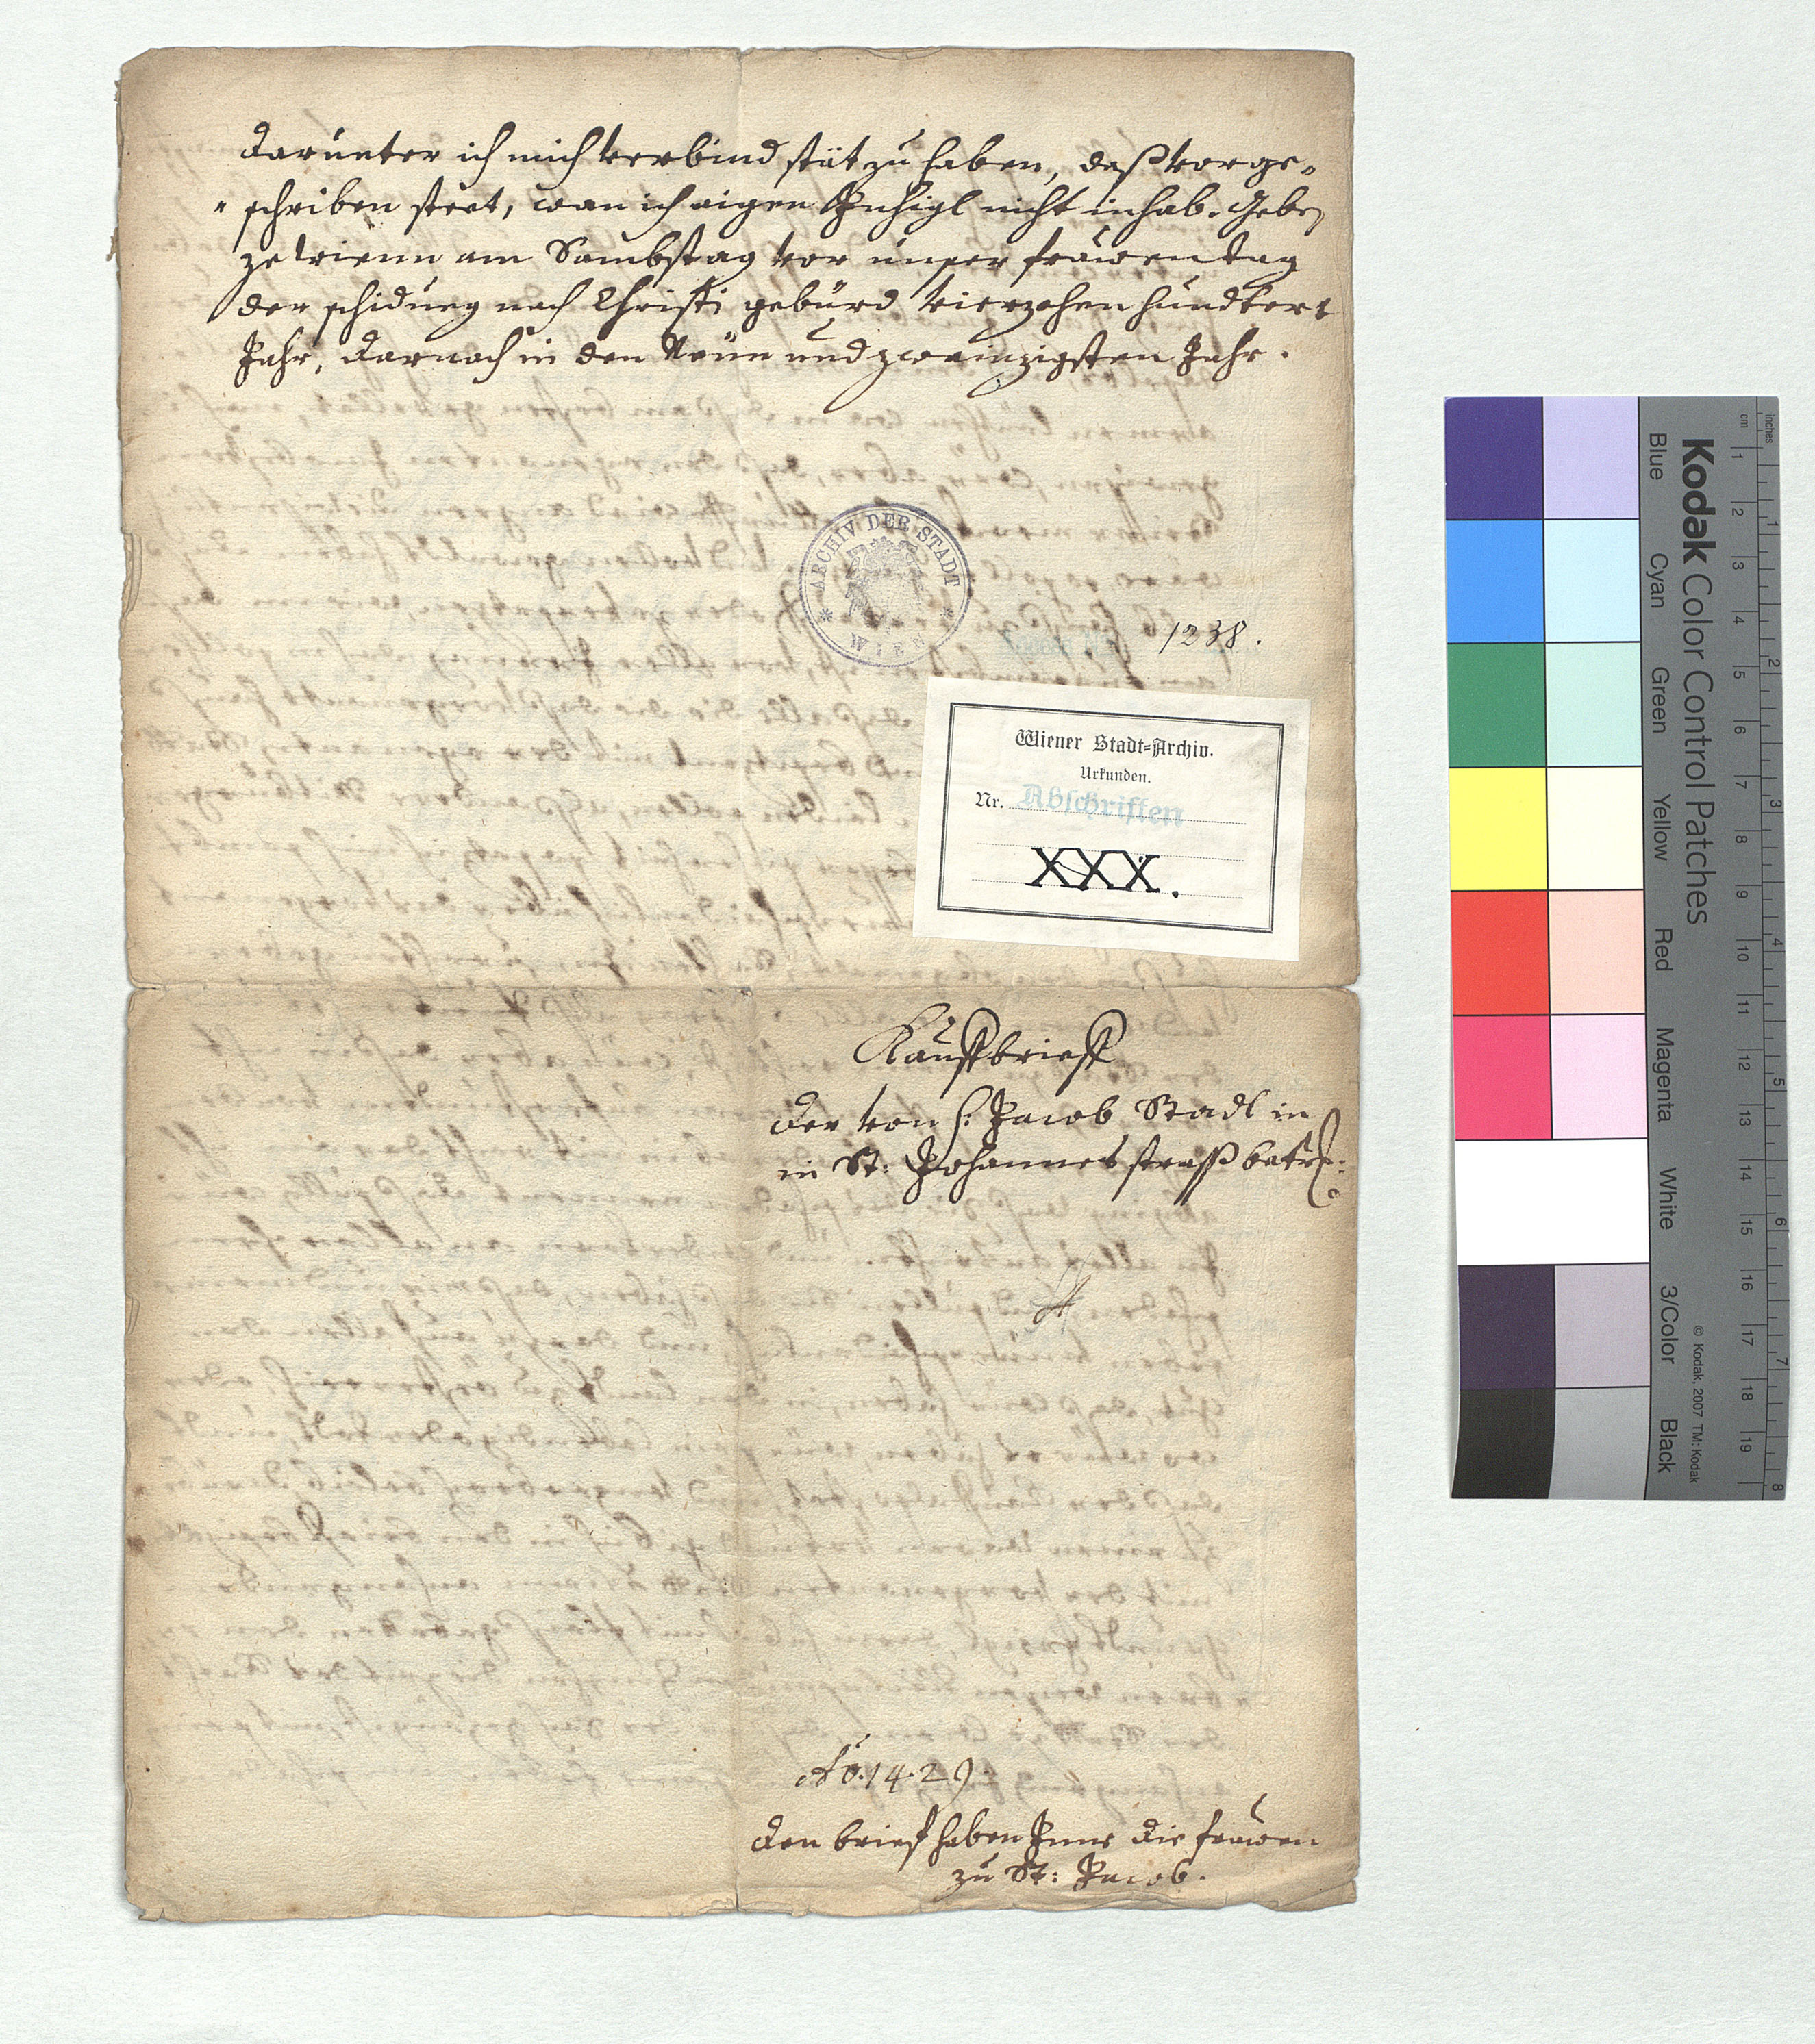 darunter ich mich verbind stät zu haben, daß vorge=
=schriben steet, wan ich aigen Jnsigl nicht inhab. Geben
ze wienn am Sambstag vor unser frauwen tag
der schidung nach Christi gebürd vierzehen hundtert
Jahr, darnach in den Neün und zwainzigsten Jahr.
ARCHIV DER STADT
WIEN
1238.
Wiener Stadt=Archiv.
Urkunden.
Nr. Abschriften
XXX.
Kauffbrieff
der von S. Jacob Stadl in
in St: Johannes strass betr:
Ao. 1429.
den brief haben Jnne die frauwen
zu St: Jacob.
Kodak Color Control Patches
Blue Cyan Green Yellow Red Magenta White 3/Color Black
© Kodak, 2007 TM: Kodak
inches 1 2 3 4 5 6 7 8
cm 1 2 3 4 5 6 7 8 9 10 11 12 13 14 15 16 17 18 19